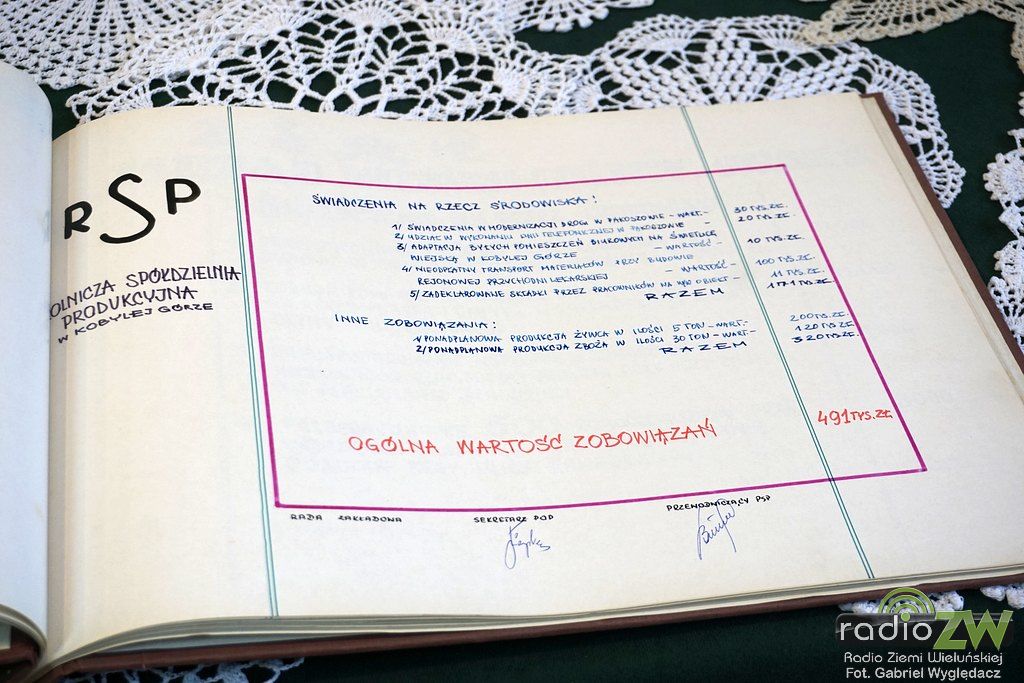 RSP
ROLNICZA SPÓŁDZIELNIA
PRODUKCYJNA
W KOBYLEJ GÓRZE
ŚWIADCZENIA NA RZECZ ŚRODOWISKA:
1/ ŚWIADCZENIA W MODERNIZACJI DROGI W PAKOSZOWIE - WART.- 30 TYS. ZŁ.
2/ UDZIAŁ W WYKONANIU LINII TELEFONICZNEJ W - 20 TYS. ZŁ.
3/ ADAPTACJA BYŁYCH POMIESZCZEŃ BIUROWYCH NA ŚWIETLICĘ
WIEJSKĄ W KOBYLEJ GÓRZE - WARTOŚĆ - 10 TYS. ZŁ.
4/ NIEODPŁATNY TRANSPORT MATERIAŁÓW PRZY BUDOWIE
REJONOWEJ PRZYCHODNI LEKARSKIEJ - WARTOŚĆ - 100 TYS. ZŁ.
5/ ZADEKLAROWANE SKŁADKI PRZEZ PRACOWNIKÓW NA WW OBIEKT 11 TYS. ZŁ.
RAZEM 171 TYS. ZŁ.
INNE ZOBOWIĄZANIA:
1/ PONADPLANOWA PRODUKCJA ŻYWCA W ILOŚCI 5 TON - WART.- 200 TYS. ZŁ.
2/ PONADPLANOWA PRODUKCJA ZBOŻA W ILOŚCI 30 TON - WART.- 120 TYS. ZŁ.
RAZEM 320 TYS. ZŁ.
OGÓLNA WARTOŚĆ ZOBOWIĄZAŃ 491 TYS. ZŁ.
RADA ZAKŁADOWA SEKRETARZ POP PRZEWODNICZĄCY RSP
radioZW
Radio Ziemi Wieluńskiej
Fot. Gabriel Wyględacz